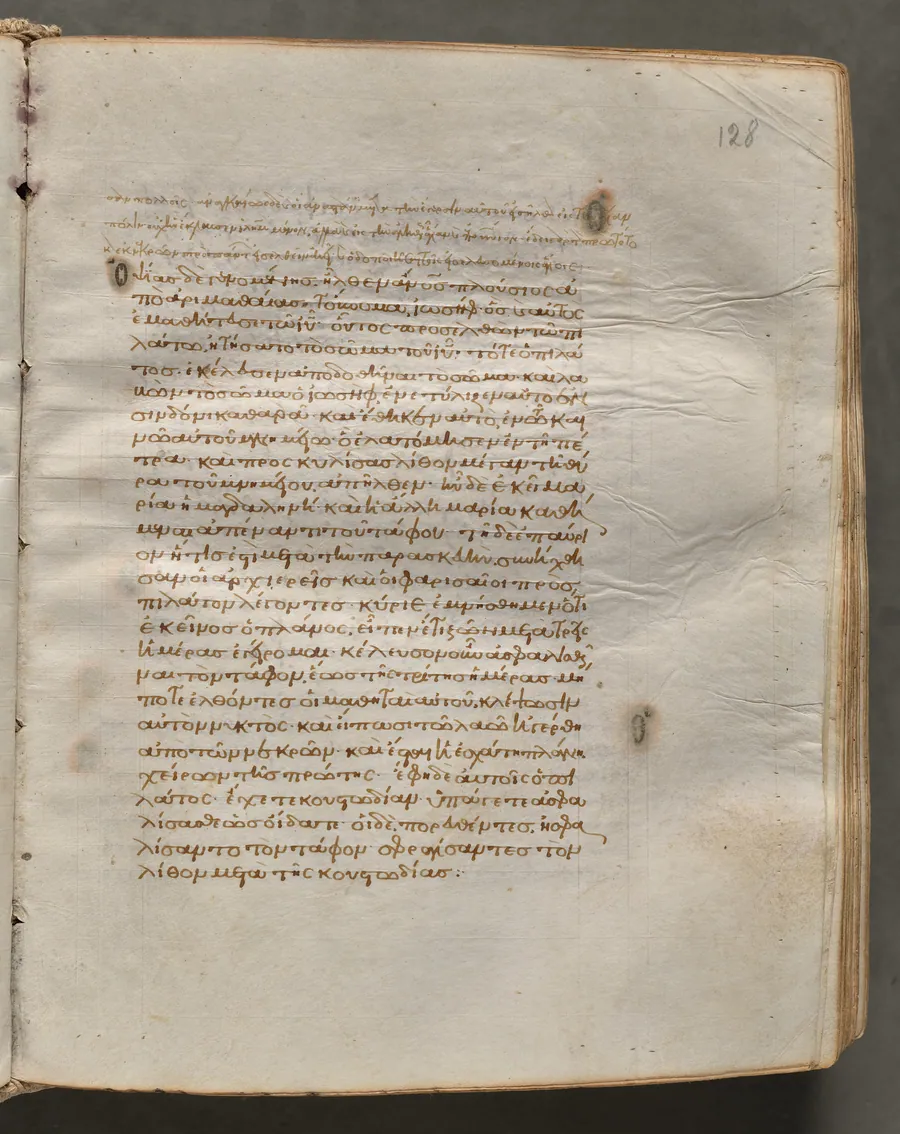 128
ὀψίας δὲ γενομένης· ἦλθεν ἄνος πλούσιος ἀ
πὸ ἀριμαθαίας· τοὔνομα, ἰωσὴφ· ὃς καὶ αὐτὸς
ἐμαθήτευσε τῶ ιυ· οὗτος προσελθὼν τῶ πι
λάτω, ἠτήσατο τὸ σῶμα τοῦ ιυ· τότε ὁ πιλᾶ
τος· ἐκέλευσεν ἀποδοθῆναι τὸ σῶμα· καὶ λα
βὼν τὸ σῶμα ὁ ἰωσὴφ, ἐνετύλιξεν αὐτὸ ἐν
σινδόνι καθαρᾶ· καὶ ἔθηκεν αὐτὸ, ἐν τῶ και
νῶ αὐτοῦ μνημείω· ὃ ἐλατόμησεν ἐν τῆ πέ
τρα· καὶ προσκυλίσας λίθον μέγαν τῆ θύ
ρα τοῦ μνημείου, ἀπῆλθεν· ἦν δὲ ἐκεῖ μα
ρία ἡ μαγδαληνὴ· καὶ ἡ ἄλλη μαρία καθή
μεναι ἀπέναντι τοῦ τάφου· τῆ δὲ ἐπαύρι
ον ἥτις ἐστὶ μετὰ τὴν παρασκευὴν, συνήχθη
σαν οἱ ἀρχιερεῖς καὶ οἱ φαρισαῖοι πρὸς
πιλάτον λέγοντες· κύριε ἐμνήσθημεν ὅτι
ἐκεῖνος ὁ πλάνος, εἶπεν ἔτι ζῶν μετὰ τρεῖς
ἡμέρας ἐγείρομαι· κέλευσον οὖν ἀσφαλισθῆ
ναι τὸν τάφον, ἕως τῆς τρίτης ἡμέρας· μή
ποτε ἐλθόντες οἱ μαθηταὶ αὐτοῦ, κλέψωσιν
αὐτὸν νυκτὸς· καὶ εἴπωσι τῶ λαῶ ἠγέρθη
ἀπὸ τῶν νεκρῶν· καὶ ἔσται ἡ ἐσχάτη πλάνη
χείρων τῆς πρώτης· ἔφη δὲ αὐτοῖς ὁ πι
λάτος· ἔχετε κουστωδίαν· ὑπάγετε ἀσφα
λίσασθε ὡς οἴδατε· οἱ δὲ πορευθέντες, ἠσφα
λίσαντο τὸν τάφον· σφραγίσαντες τὸν
λίθον μετὰ τῆς κουστωδίας: